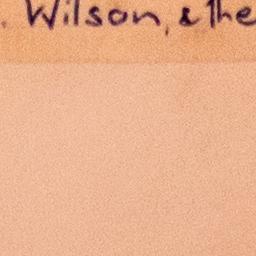 . Wilson, & the